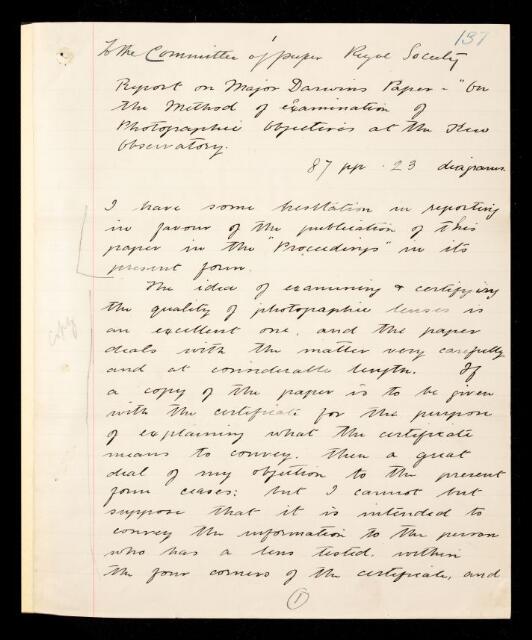 137
To the Committee of paper Royal Society
Report on Major Darwins Paper - "On
the Method of examination of
Photographic Objectives at the Kew
Observatory.
87 pp. 23 diagrams.
I have some hesitation in reporting
in favour of the publication of this
paper in the "Proceedings" in its
present form.
The idea of examining & certifying
the quality of photographic lenses is
an excellent one, and the paper
deals with the matter very carefully
and at considerable length. If
a copy of the paper is to be given
with the certificate for the purpose
of explaining what the certificate
means to convey, then a great
deal of my objection to the present
form ceases; but I cannot but
suppose that it is intended to
convey the information to the person
who has a lens tested, within
the four corners of the certificate, and
copy
1